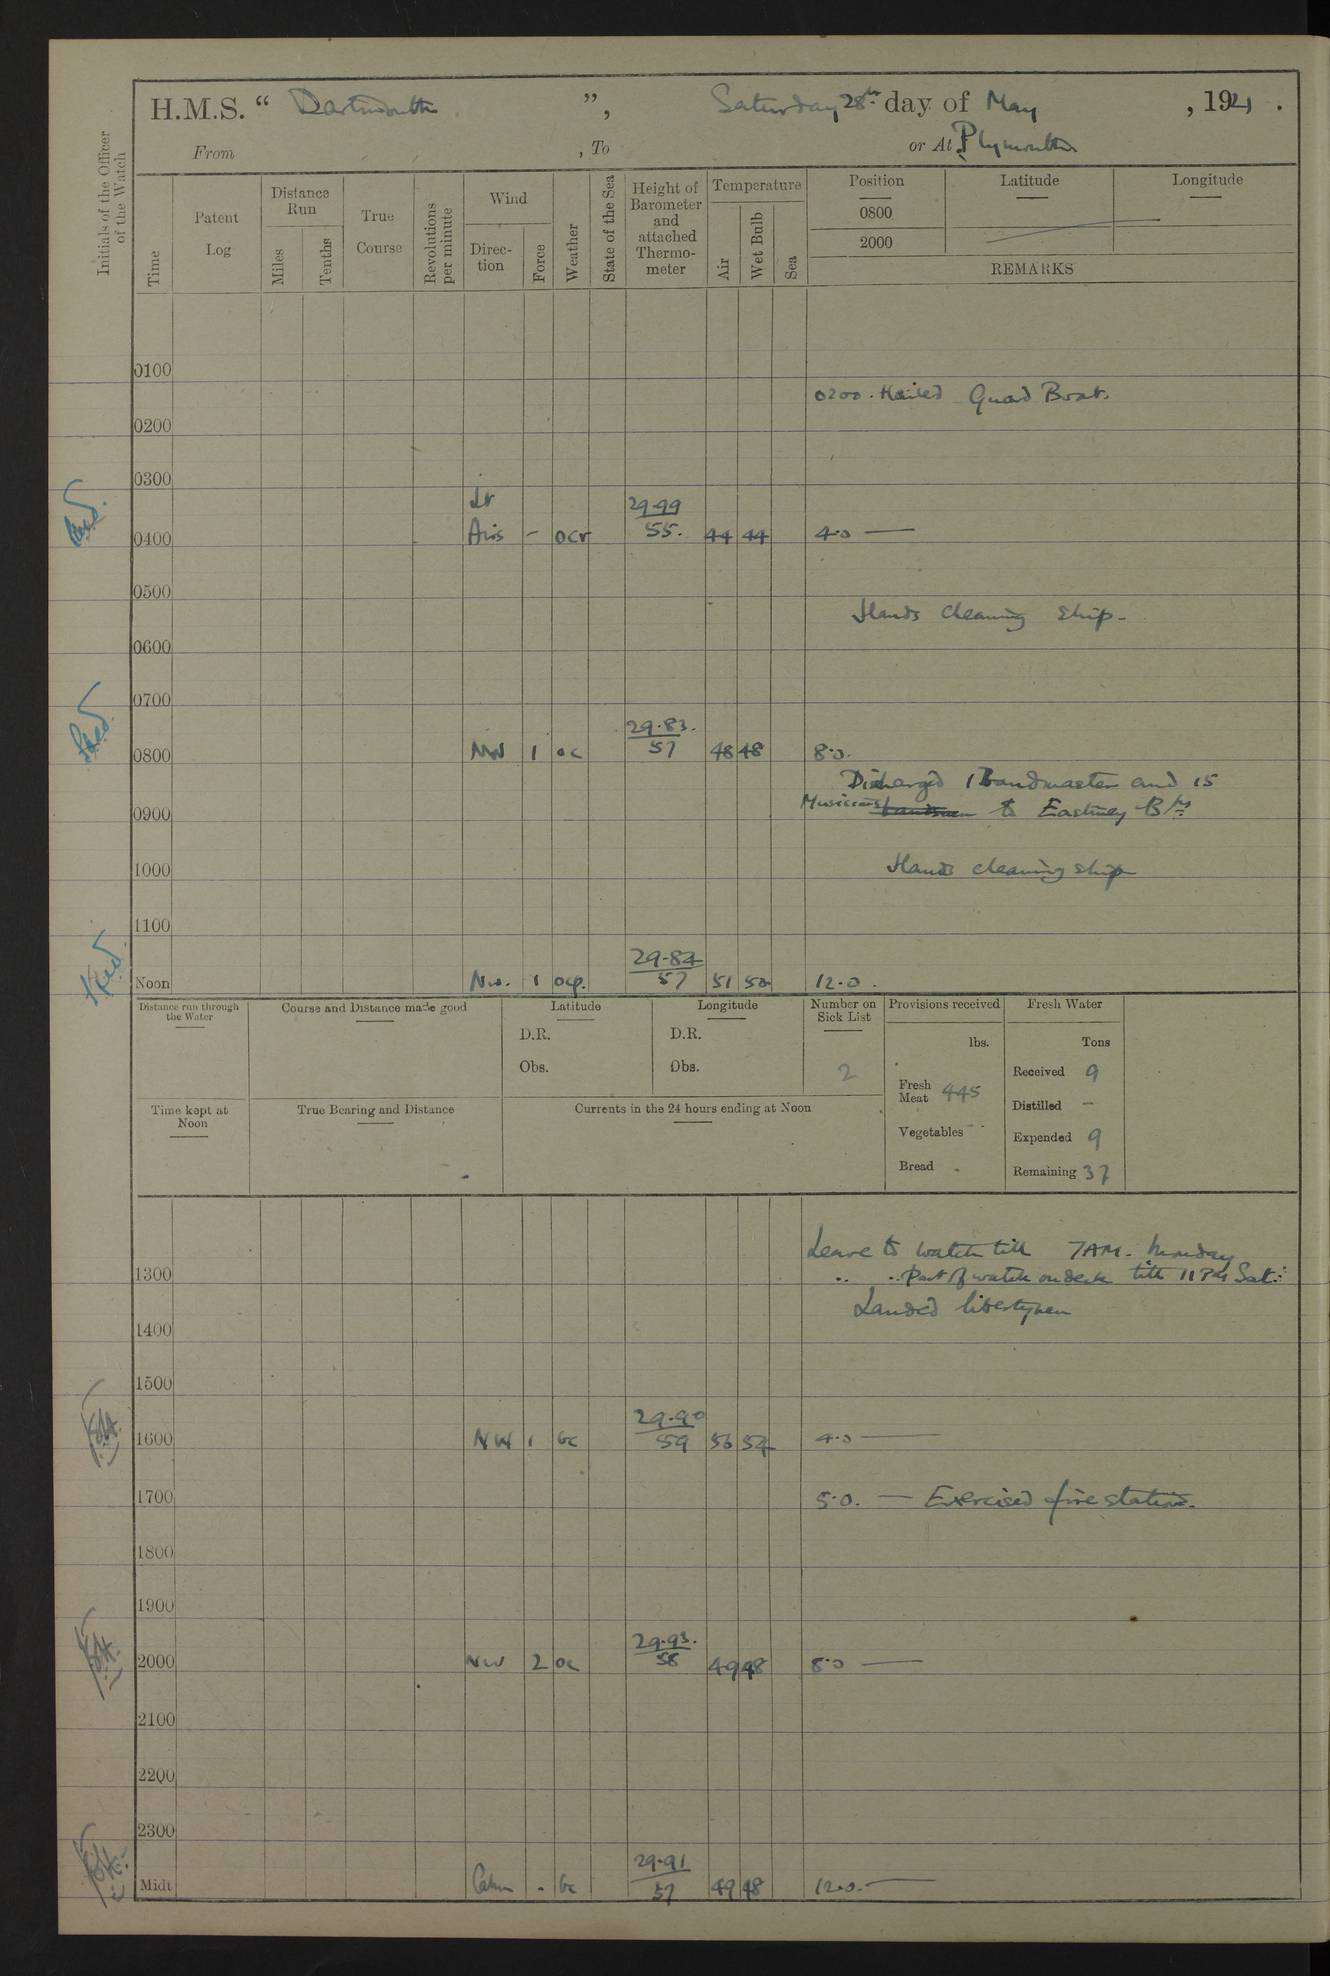 H.M.S. “ Dartmouth ”, Saturday 28th day of May , 1921 .
From , To or At Plymouth
Initials of the Officer of the Watch
Time
Patent Log
Distance Run
Miles
Tenths
True Course
Revolutions per minute
Wind
Direc-tion
Force
Weather
State of the Sea
Height of Barometer and attached Thermo-meter
Temperature
Air
Wet Bulb
Sea
Position Latitude Longitude
0800
2000
REMARKS
0100
0200. Hailed Guard Boat.
0200
0300
Lt 29.99
0400 Airs - ocr 55. 44 44 4.0 —
0500
Hands cleaning ship -
0600
0700
29.83.
0800 NW 1 oc 57 48 48 8.0.
Discharged 1 Bandmaster and 15
0900 Musicians to Eastney Bks
1000 Hands cleaning ship
1100
29.84
Noon NW. 1 ocp. 57 51 50 12.0.
Distance run through the Water
Course and Distance made good
Latitude
D.R.
Obs.
Longitude
D.R.
Obs.
Number on Sick List
2
Provisions received
lbs.
Fresh Meat 445
Vegetables - -
Bread -
Fresh Water
Tons
Received 9
Distilled —
Expended 9
Remaining 37
Time kept at Noon
True Bearing and Distance
Currents in the 24 hours ending at Noon
Leave to watch till 7AM. Monday
1300 .. .. Part of watch on deck till 11 PM Sat.
Landed libertymen
1400
1500
29.90
1600 NW 1 bc 59 56 54 4.0 —
1700 5.0. — Exercised fire stations.
1800
1900
29.93.
2000 NW 2 oc 58 49 48 8.0 —
2100
2200
2300
29.91
Midt Calm . bc 57 49 48 12.0. —